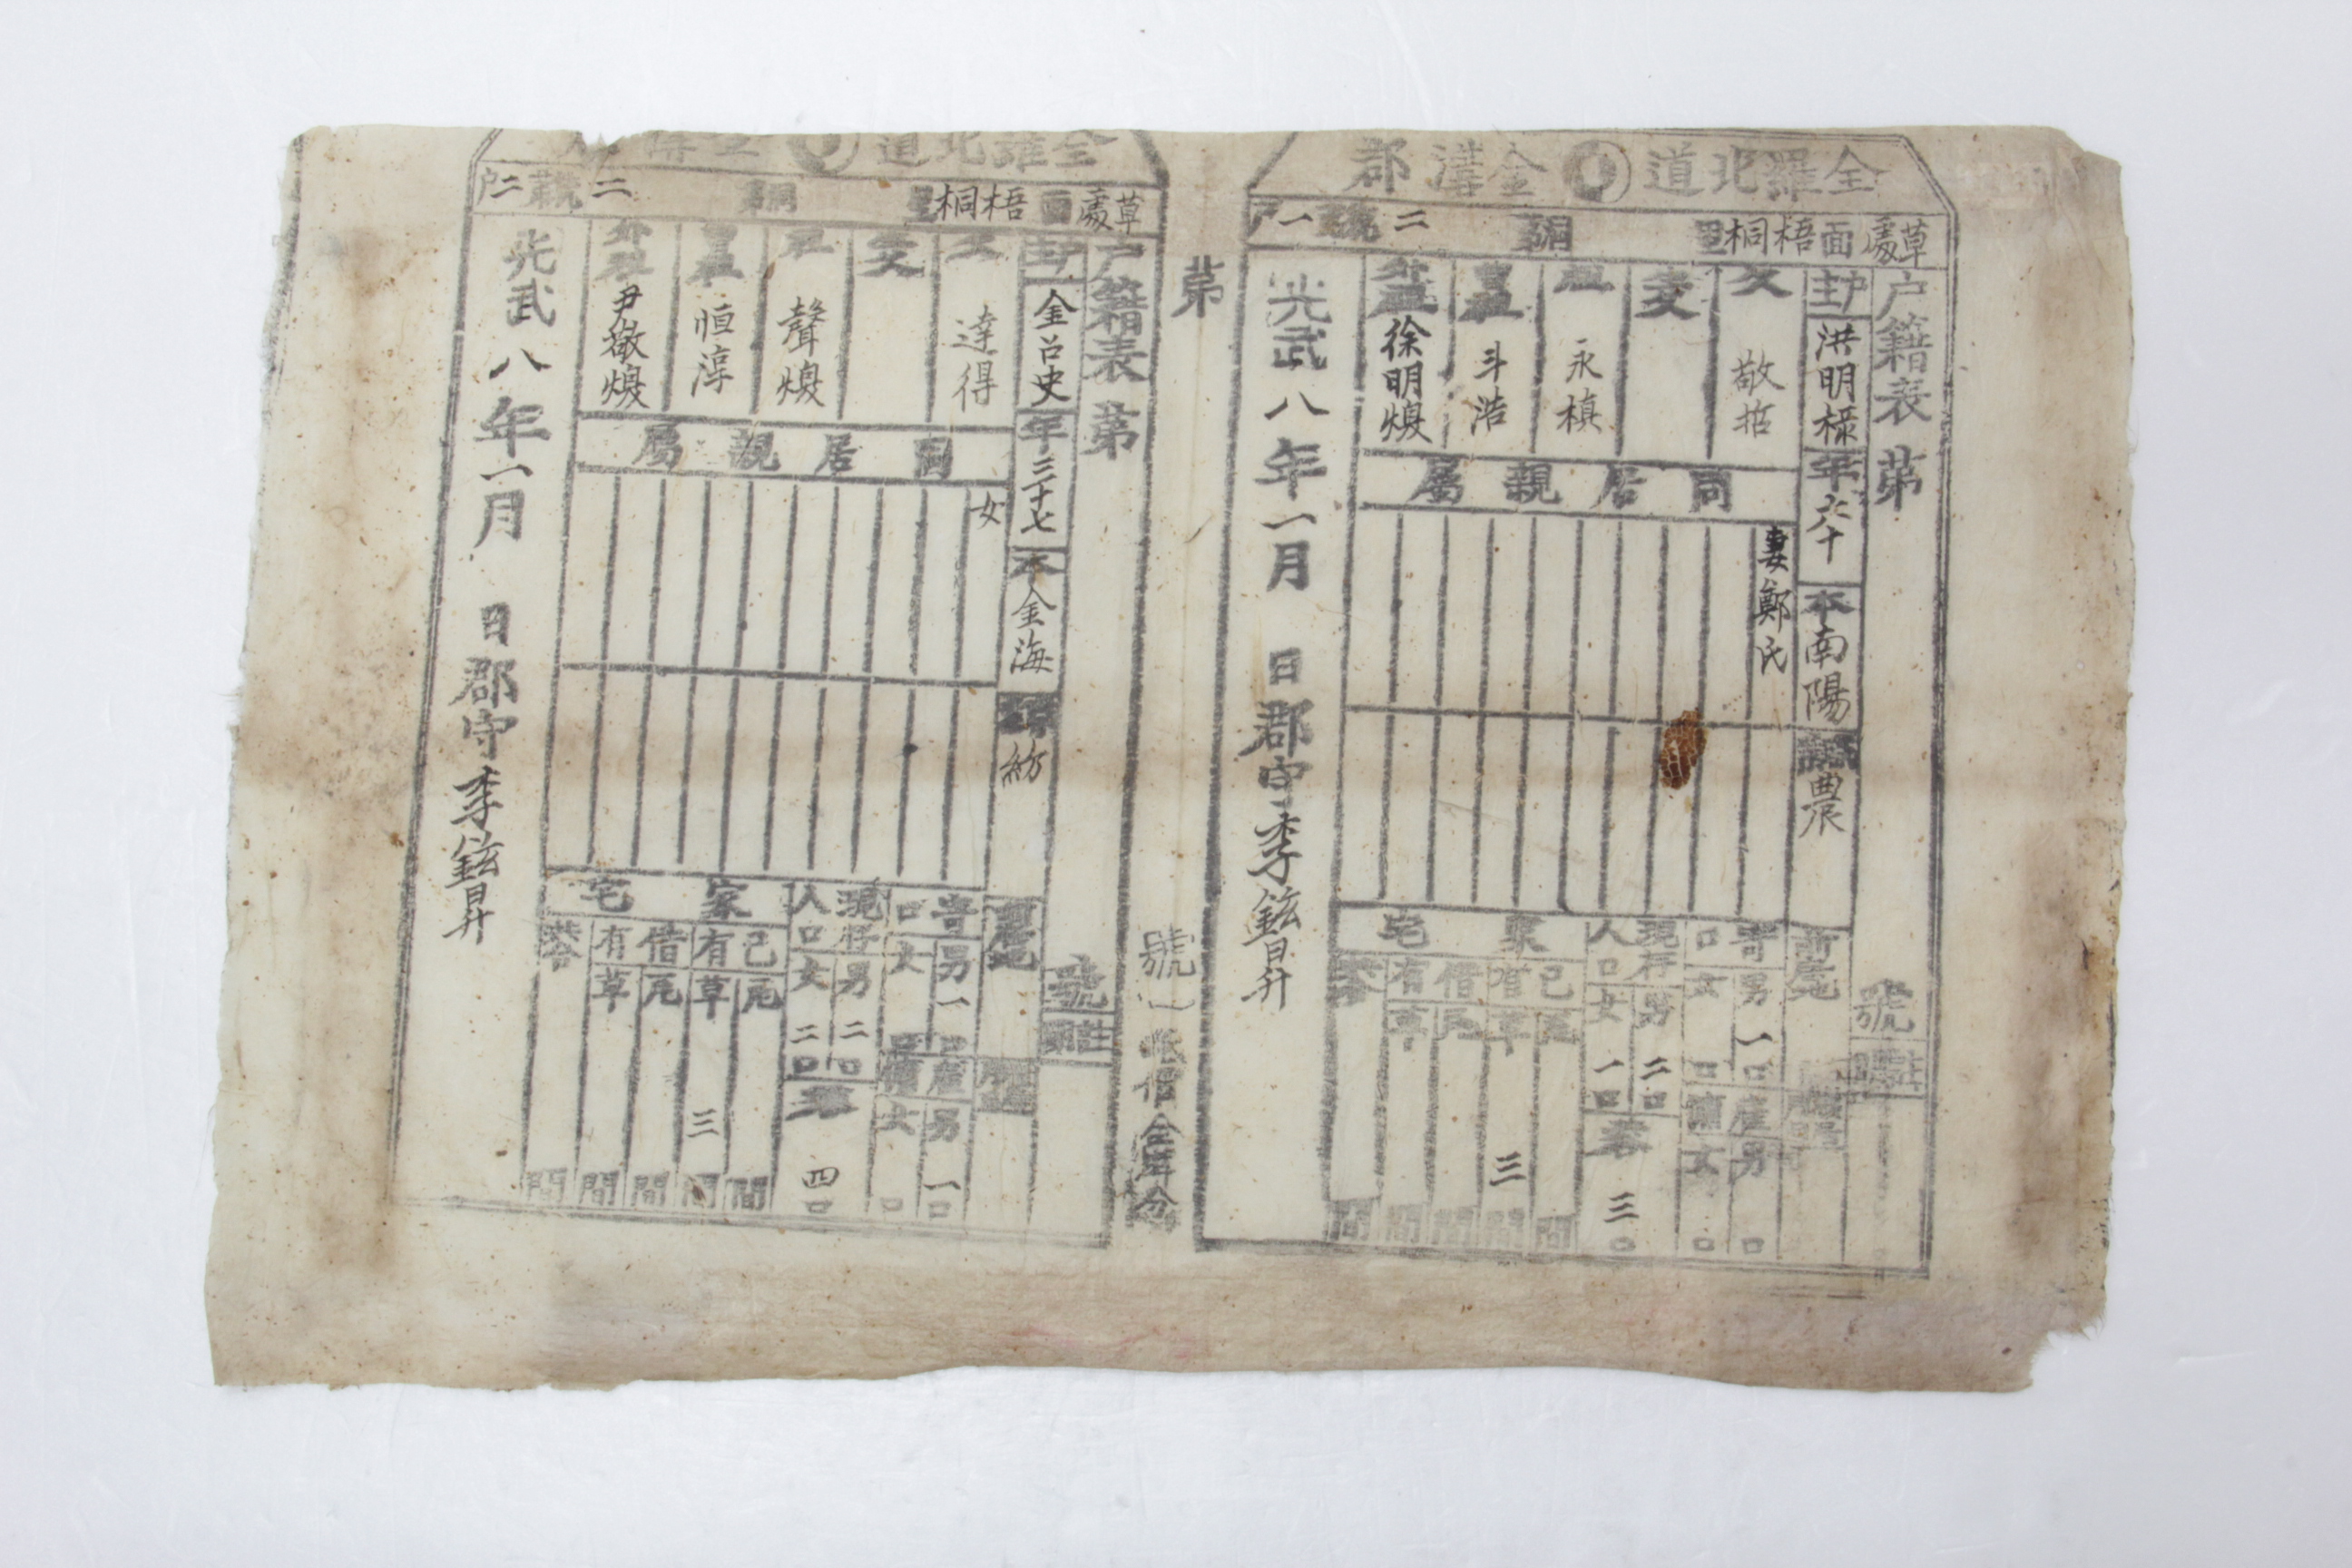 全羅北道 金溝郡
草處面 梧桐里 第 統 二 號 一 戶
戶籍表 第 號
戶主 洪明祿 年 六十 本 南陽 職業 農
父 敬哲
生父
祖 永楨
曾祖 斗浩
外祖 徐明煥
同居親屬
妻鄭氏
寄口 男 一口 女 口
雇傭 男 口 女 口
現存人口 男 二口 女 一口
共 三口
家宅
己有 瓦 間 草 三間
借有 瓦 間 草 間
共 間
光武八年一月 日郡守李鉉昇
第 號
全羅北道
草處面 梧桐里 第 統 二 號 二 戶
戶籍表 第 號
戶主 金召史 年 三十七 本 金海 職業 紡
父 達得
生父
祖 聲煥
曾祖 恒淳
外祖 尹敬煥
同居親屬
女
寄口 男 一口 女 口
雇傭 男 一口 女 口
現存人口 男 二口 女 二口
共 四口
家宅
己有 瓦 間 草 三間
借有 瓦 間 草 間
共 間
光武八年一月 日郡守李鉉昇